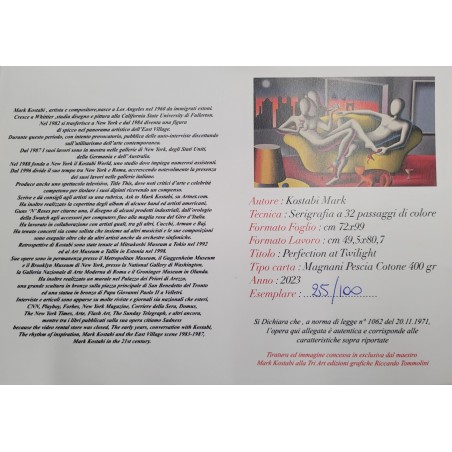 Mark Kostabi , artista e compositore,nasce a Los Angeles nel 1960 da immigrati estoni.
Cresce a Whittier ,studia disegno e pittura alla California State University di Fullerton.
Nel 1982 si trasferisce a New York e dal 1984 diventa una figura
di spicco nel panorama artistico dell'East Village.
Durante questo periodo, con intento provocatorio, pubblica delle auto-interviste discettando
sull'utilitarismo dell'arte contemporanea.
Dal 1987 i suoi lavori sono in mostra nelle gallerie di New York, degli Stati Uniti,
della Germania e dell'Australia.
Nel 1988 fonda a New York il Kostabi World, uno studio dove impiega numerosi assistenti.
Dal 1996 divide il suo tempo tra New York e Roma, accrescendo notevolmente la presenza
dei suoi lavori nelle gallerie italiane.
Produce anche uno spettacolo televisivo, Title This, dove noti critici d'arte e celebrità
competono per titolare i suoi dipinti ricevendo un compenso.
Scrive e dà consigli agli artisti su una rubrica, Ask to Mark Kostabi, su Artnet.com.
Ha inoltre realizzato la copertina degli album di alcune band ed artisti americani,
Guns 'N' Roses per citarne una, il disegno di alcuni prodotti industriali, dall'orologio
della Swatch agli accessori per computer, fino alla maglia rosa del Giro d'Italia.
Ha lavorato in collaborazione con artisti quali, tra gli altri, Enzo Cucchi, Arman e Baj.
Ha tenuto concerti sia come solista che insieme ad altri musicisti e le sue composizioni
sono eseguite oltre che da altri artisti anche da orchestre sinfoniche.
Retrospettive di Kostabi sono state tenute al Mitsukoshi Museum a Tokio nel 1992
ed al Art Museum a Tallin in Estonia nel 1998.
Sue opere sono in permanenza presso il Metropolitan Museum, il Guggenheim Museum
e il Brooklyn Museum di New York, presso la National Gallery di Washington,
la Galleria Nazionale di Arte Moderna di Roma e il Groninger Museum in Olanda.
Ha inoltre realizzato un murale nel Palazzo dei Priori di Arezzo,
una grande scultura in bronzo sulla piazza principale di San Benedetto del Tronto
ed una statua in bronzo di Papa Giovanni Paolo II a Velletri.
Interviste e articoli sono apparsi su molte riviste e giornali sia nazionali che esteri,
CNN, Playboy, Forbes, New York Magazine, Corriere della Sera, Domus,
The New York Times, Arte, Flash Art, The Sunday Telegraph, e altri ancora,
mentre tra i libri pubblicati sulla sua opera citiamo Sadness
because the video rental store was closed, The early years, conversation with Kostabi,
The rhythm of inspiration, Mark Kostabi and the East Village scene 1983-1987,
Mark Kostabi in the 21st century.
Autore : Kostabi Mark
Tecnica : Serigrafia a 32 passaggi di colore
Formato Foglio : cm 72x99
Formato Lavoro : cm 49,5x80,7
Titolo : Perfection at Twilight
Tipo carta : Magnani Pescia Cotone 400 gr
Anno : 2023
Esemplare : 85/100
Si Dichiara che , a norma di legge n° 1062 del 20.11.1971,
l'opera qui allegata è autentica e corrisponde alle
caratteristiche sopra riportate
Tiratura ed immagine concessa in esclusiva dal maestro
Mark Kostabi alla Tri Art edizioni grafiche Riccardo Tommolini